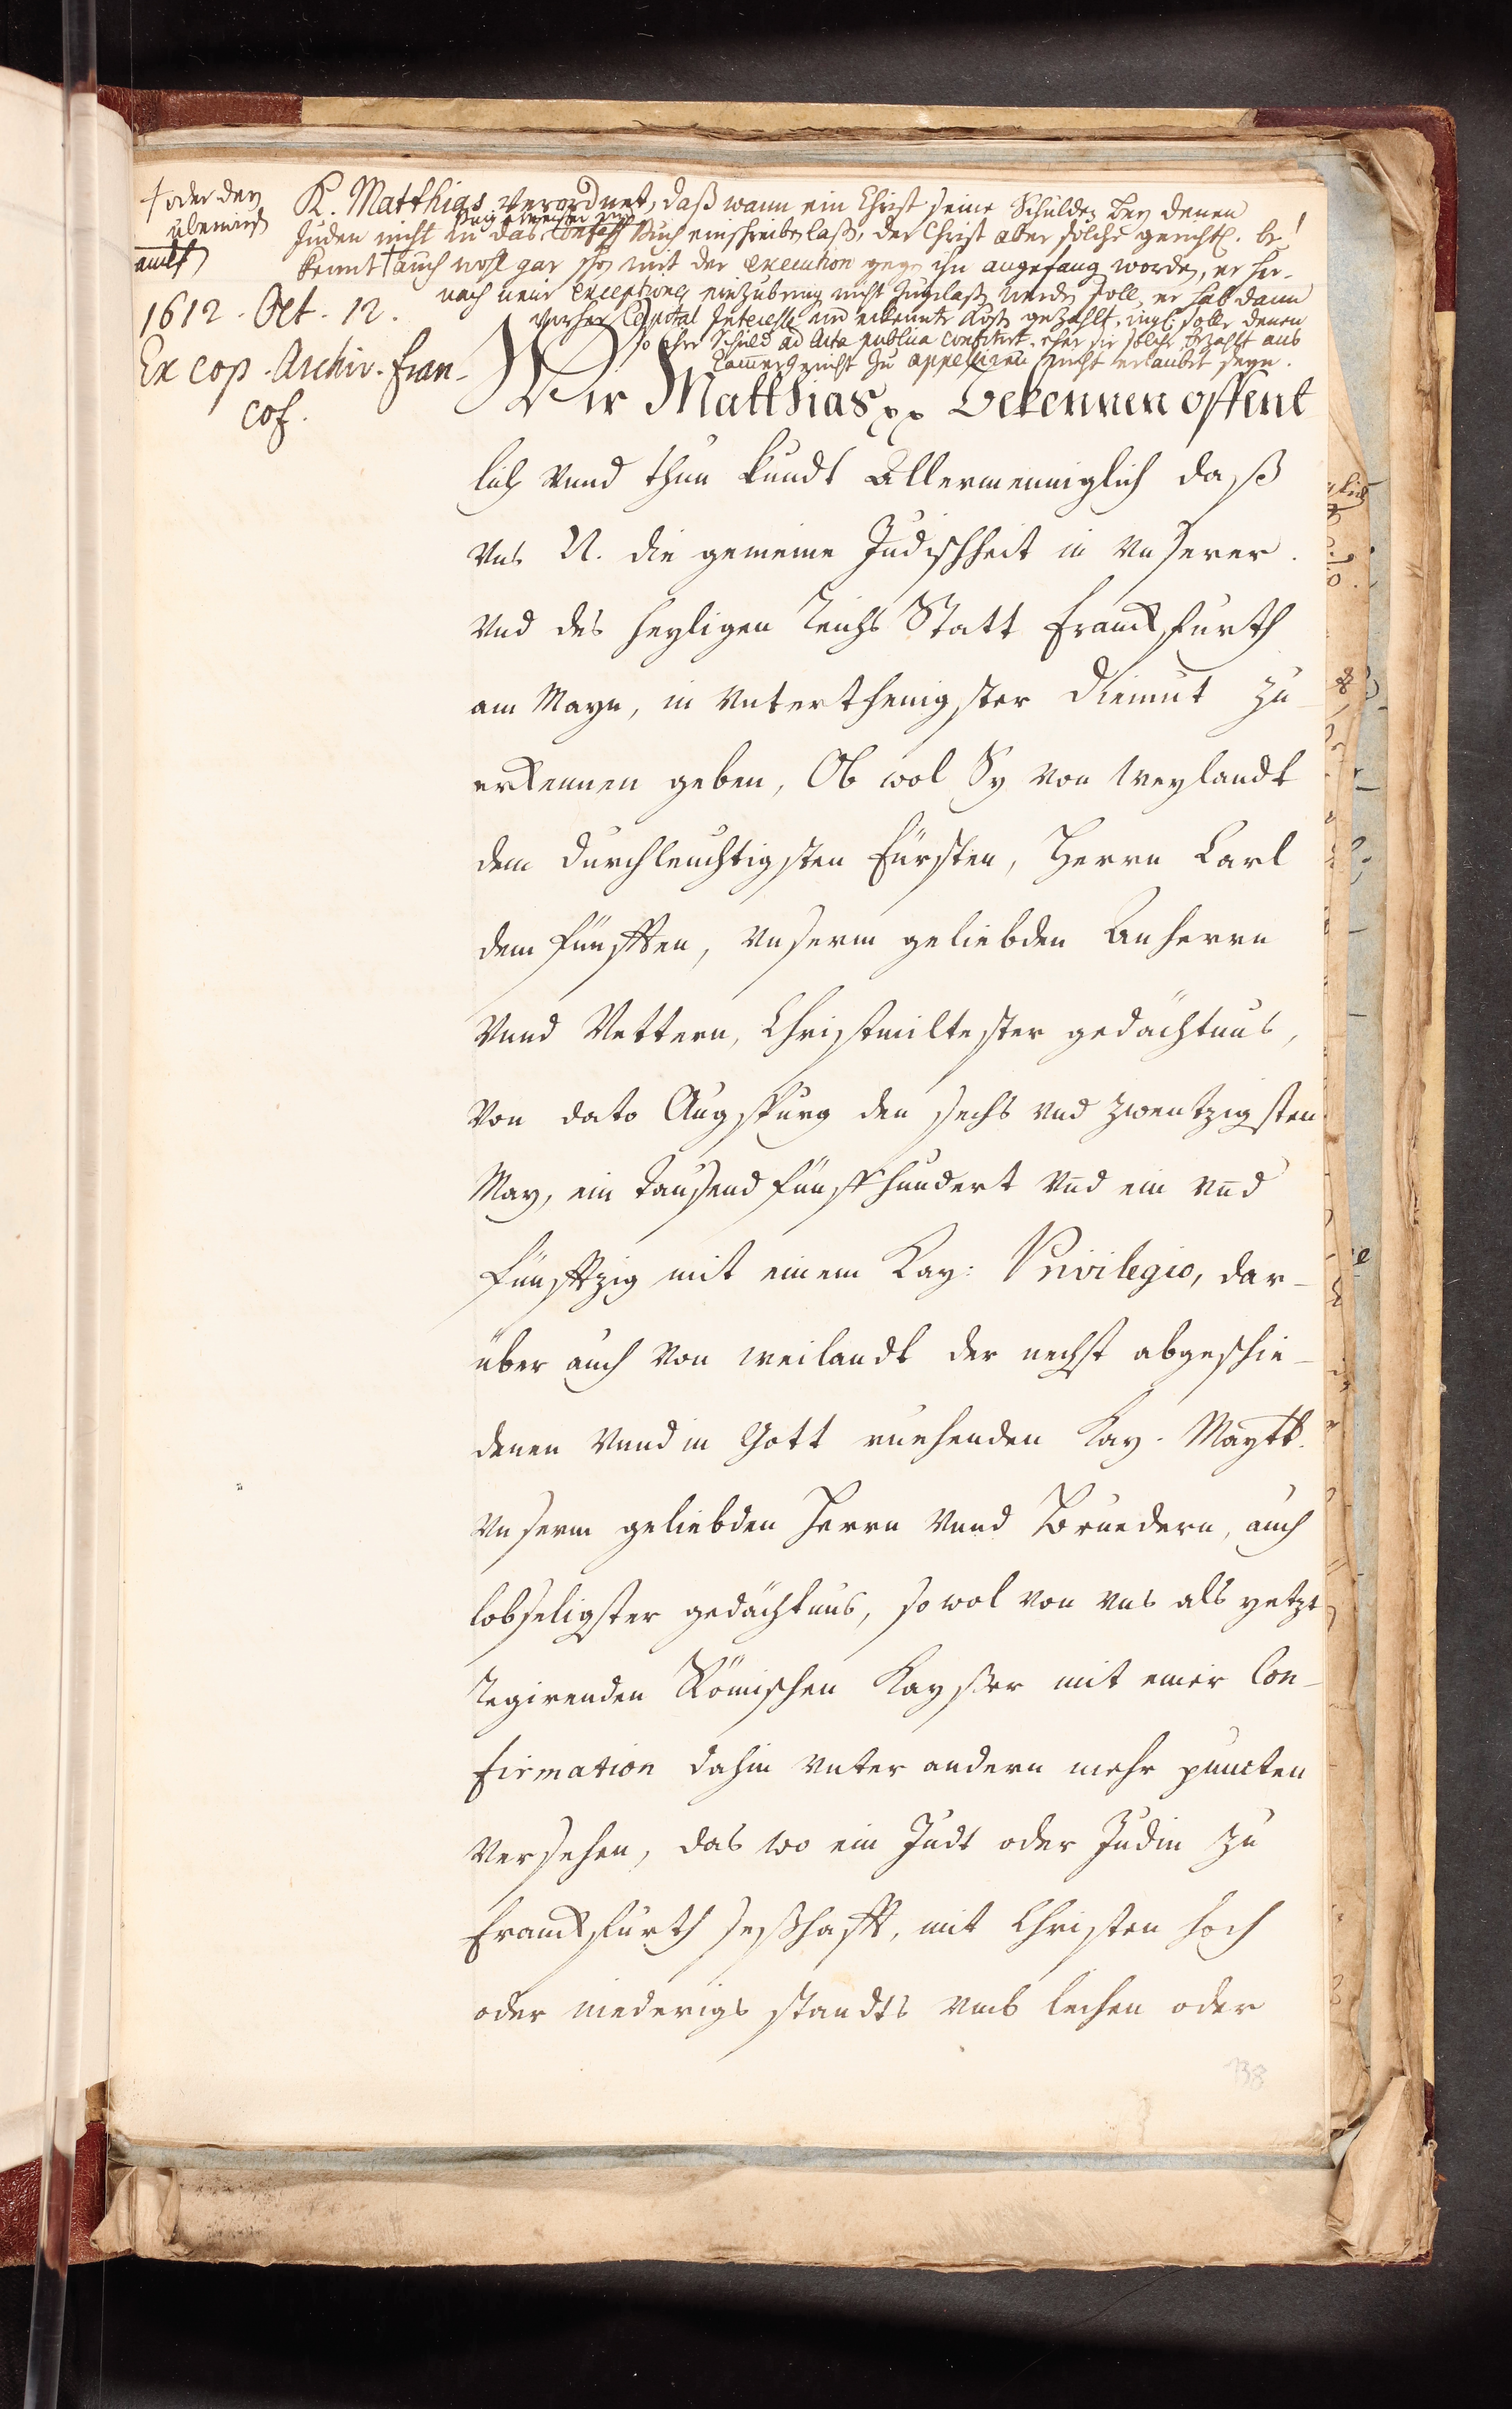 † oder den
überwies
amt
1612. Oct. 12.
Ex cop. Archiv. fran-
cof.
K. Matthias verordnet, daß wann ein Christ seine Schulden bey denen
Juden nicht in das Buch einschreiben laß, der Christ aber solche gerichtl. be-
kennt † auch wohl gar schon mit der execution gegen ihn angefang worden, er her-
nach neue exceptiones einzubring nicht zugelaß werden soll, er hab dann
vorher Capital Interesse und erkennte Kost gezahlt, ingl. solle denen
so ihre Schuld ad Acta publica confitirt, eher sie solche bezahlt ans
Cammergericht zu appelliren nicht erlaubt seyn.
Wir Matthias pp Bekennen offent
lich Vnnd thun kundt Allermenniglich daß
Vns N. die gemeine Judischheit in Vnserer
Vnd des heyligen Reichs Statt Franckfurth
am Mayn, in Vnterthenigster diemut zu
erkennen geben, Ob wol Sy von Weylandt
dem Durchleuchtigsten Fürsten, Herrn Carl
dem fünfften, Vnserm geliebden Anherrn
Vnnd Vettern, Christmiltester gedächtnus,
Von dato Augspurg den sechs vnd zwentzigsten
May, ein tausend fünffhundert Vnd ein Vnd
fünfftzig mit einem Kay: Privilegio, dar-
über auch von weilandt der nechst abgeschie-
denen Vnnd in Gott ruehenden Kay. Maytt.
Vnserm geliebden Herrn Vnnd Bruedern, auch
lobseligster gedächtnus, so wol von Vns als yetzt
Regirenden Römischen Kaysser mit einer Con-
firmation dahin Vnter andern mehr puncten
Versehen, das wo ein Judt oder Judin zu
Franckfurth seßhafft, mit Christen hoch
oder niederigs standts Vmb leihen oder
138